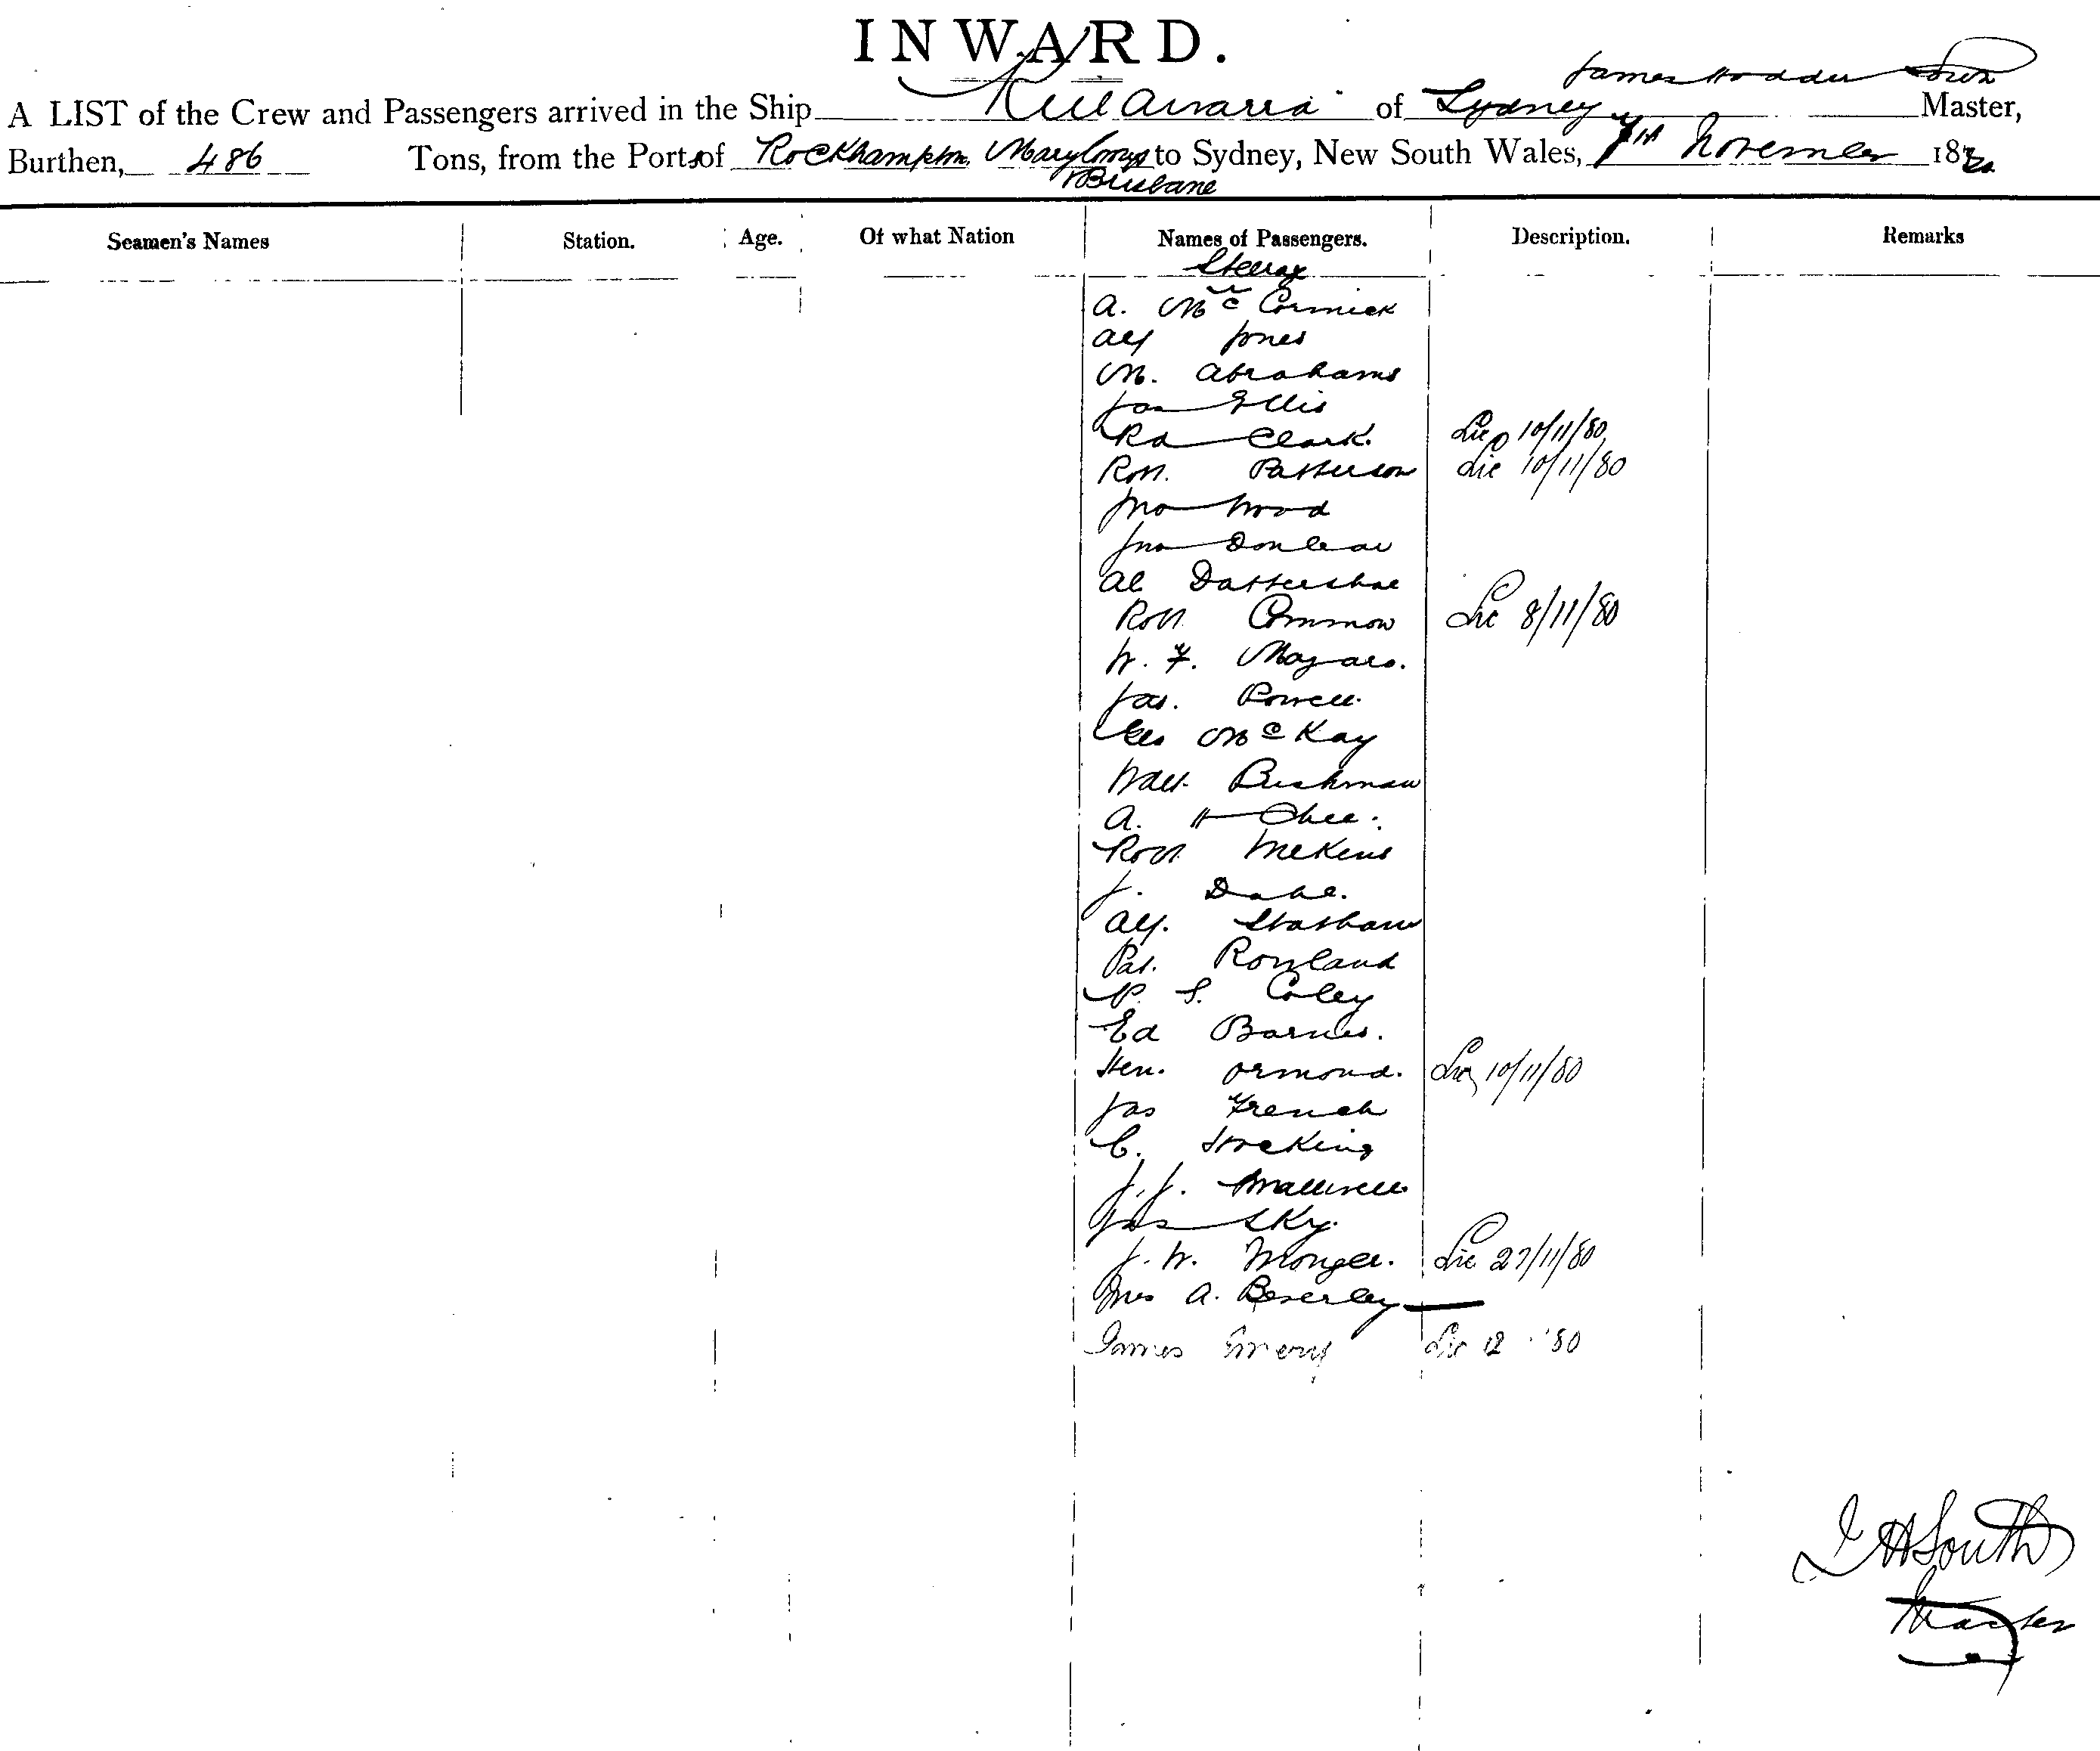 INWARD.
James Hodder South
A LIST of the Crew and Passengers arrived in the Ship Keilawarra of Sydney Master,
Burthen, 486 Tons, from the Ports of Rockhampton, Maryboro to Sydney, New South Wales, 7th November 1880
& Brisbane
Seamen's Names Station. Age. Of what Nation Names of Passengers. Description. Remarks
Steerage
A. McCormick
Alf Jones
M. Abrahams
Jas Ellis
Rd Clark. Lic 10/11/80
Robt. Patterson Lic 10/11/80
Jno Wood
Jno
Al
Robt Common Lic 8/11/80
W. F.
Jas. Powell.
Geo McKay
Walt. Bushman
A. H
Robt
J. Dahl.
Alf. Statham
Pat. Rowland
P. S. Coley
Ed Barnes.
Hen. Ormond. Lic 10/11/80
Jas French
C. Stocking
J. J. Smallwell
Jas Sky.
J. W. Monger. Lic 27/11/80
Mrs A. Beverley
James Emery Lic 12 '80
J H South
Master